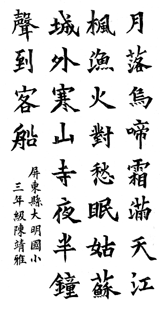 月落烏啼霜滿天江
楓漁火對愁眠姑蘇
城外寒山寺夜半鐘
聲到客船
屏東縣大明國小
三年級陳靖雅